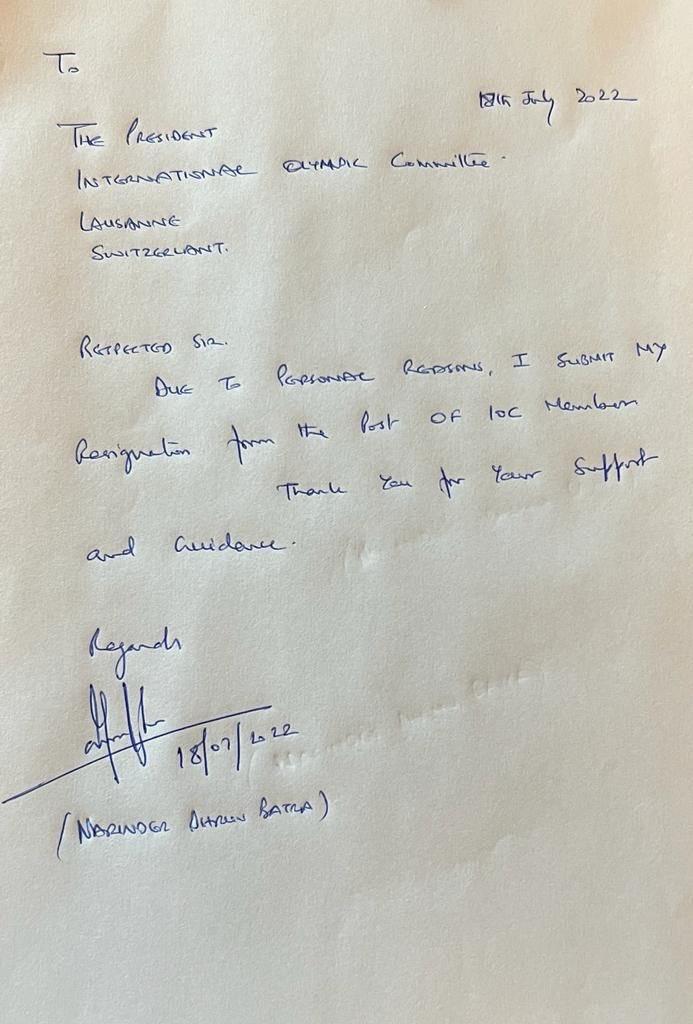 To
18th July 2022
THE PRESIDENT
INTERNATIONAL OLYMPIC Committee.
LAUSANNE
SWITZERLAND.
RESPECTED SIR.
DUE TO PERSONAL REASONS, I SUBMIT MY
Resignation from the Post OF IOC Member
Thank You for Your Support
and Guidance.
Regards
18/07/2022
(NARINDER DHRUV BATRA)